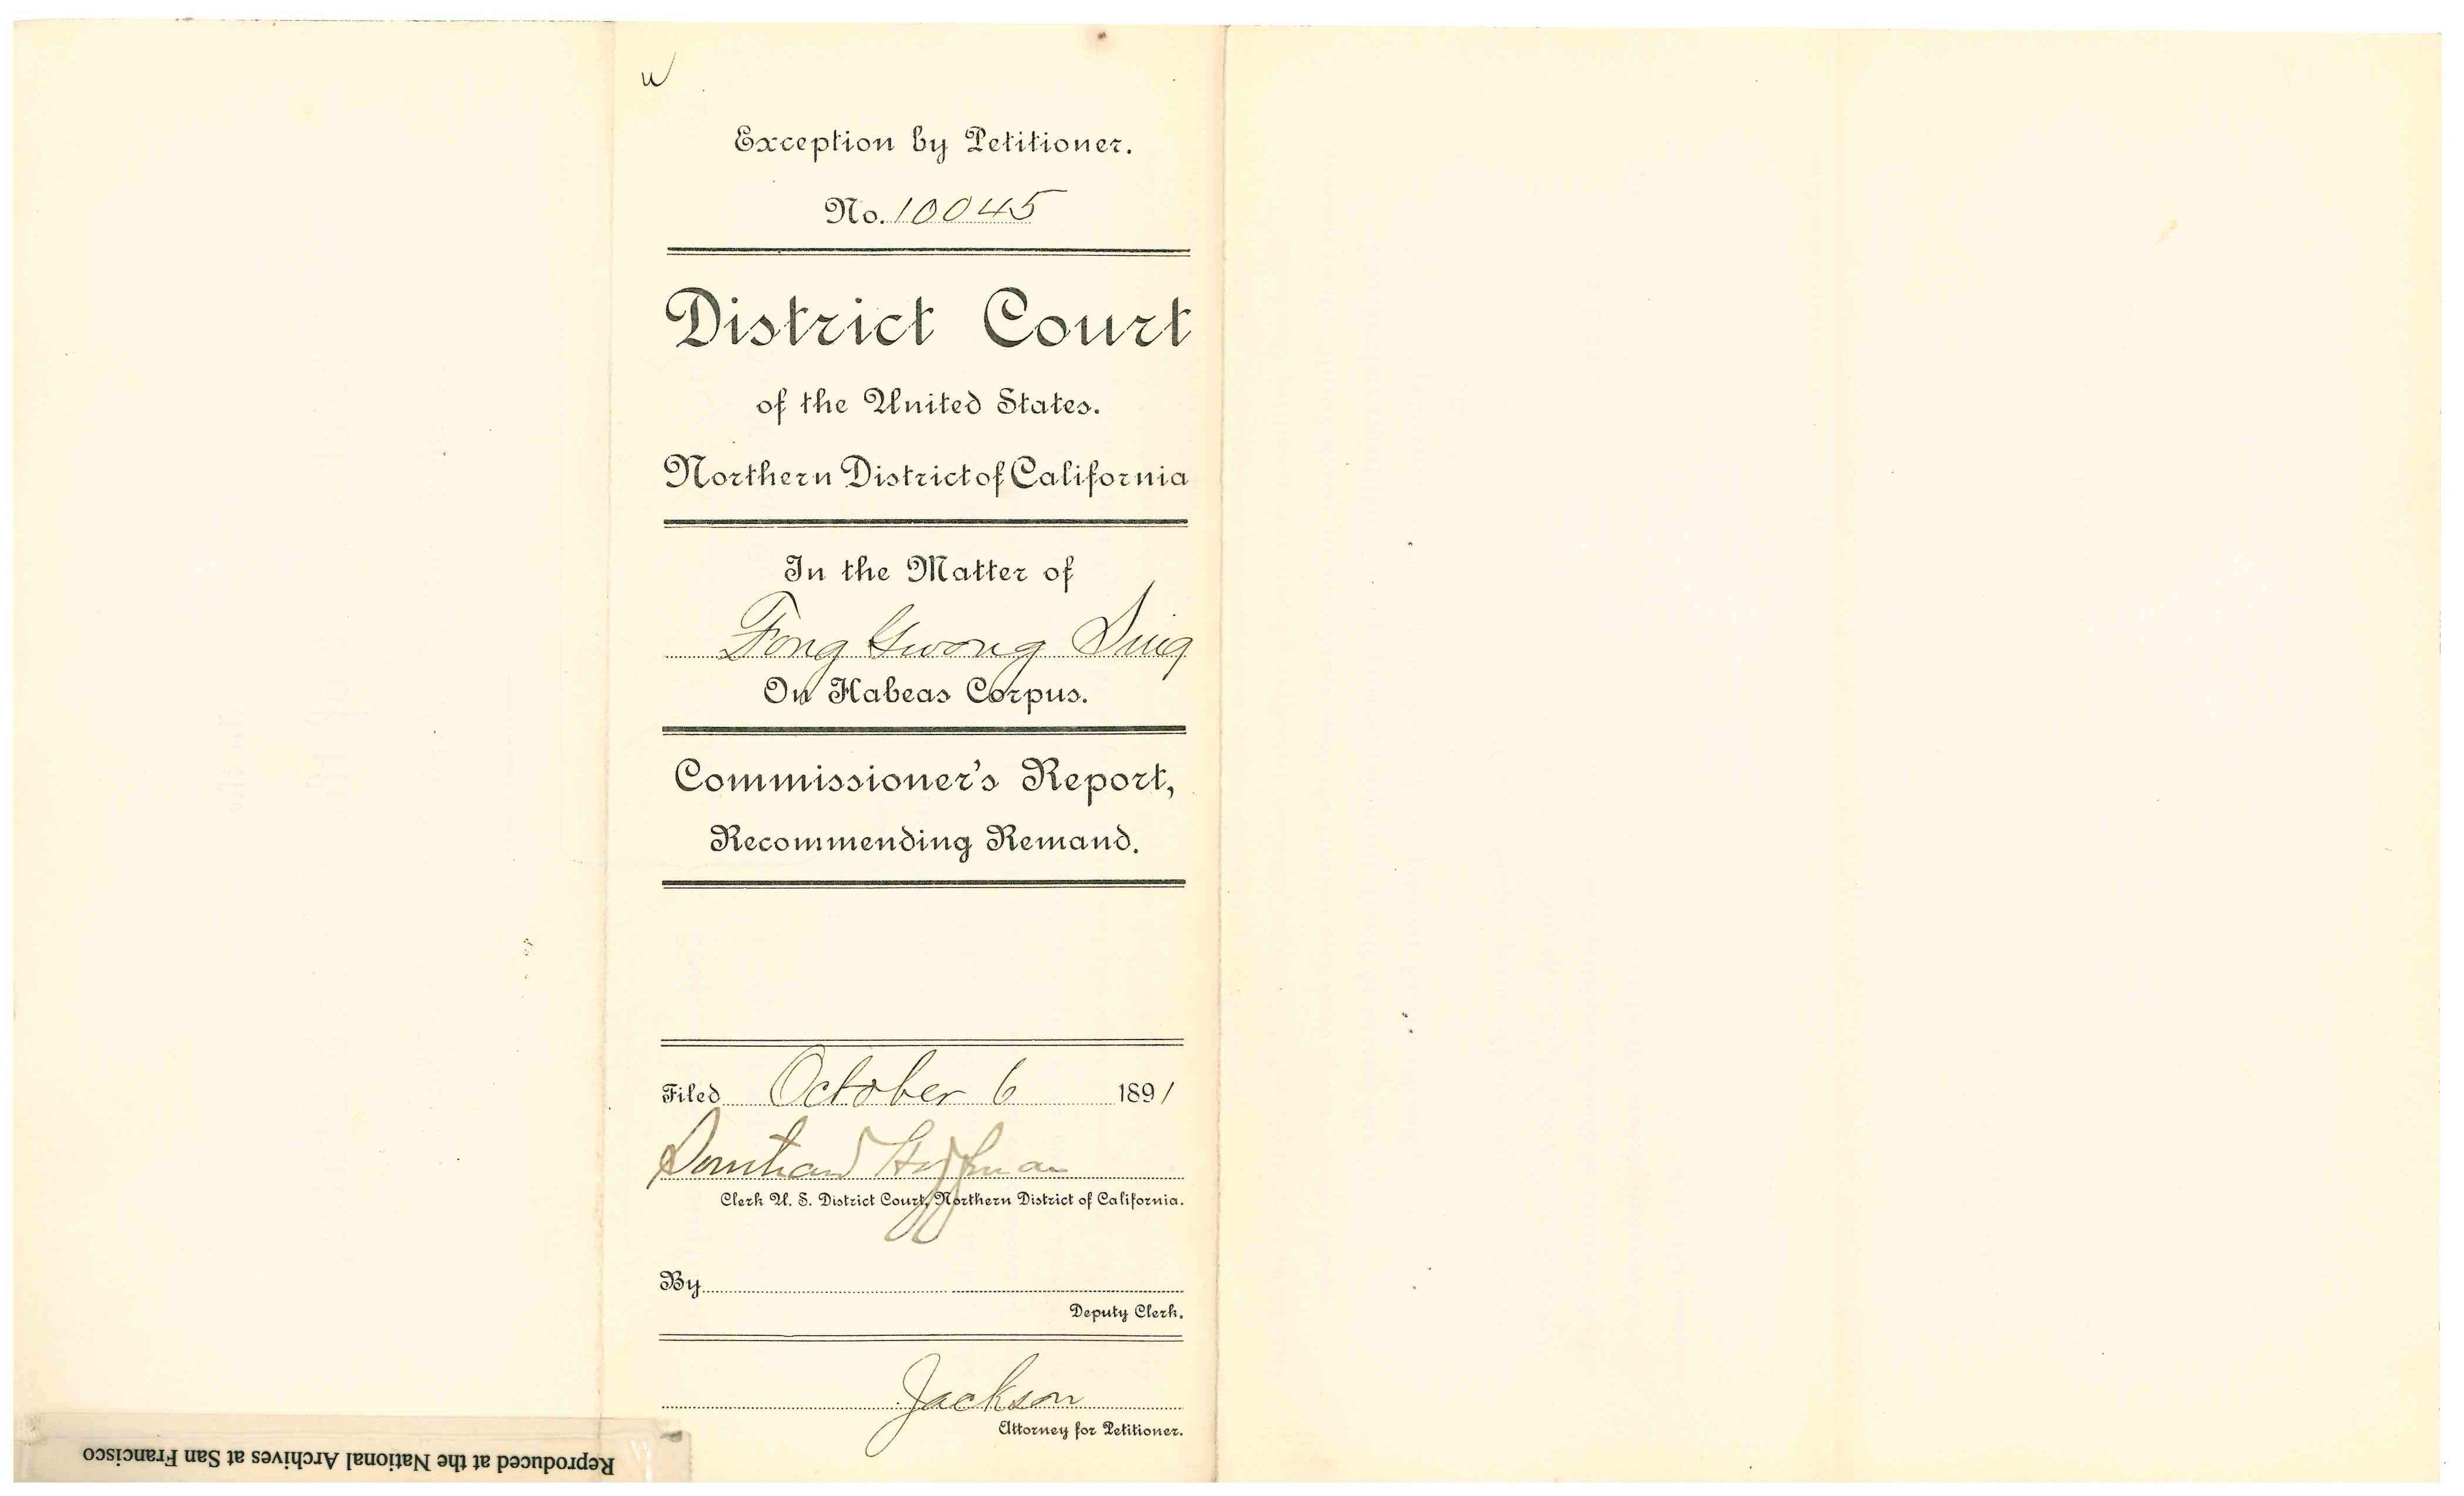 W
Exception by Petitioner.
No. 10045
District Court
of the United States.
Northern District of California
In the Matter of
Fong Gwong Sing
On Habeas Corpus.
Commissioner's Report,
Recommending Remand.
Filed October 6 1891
Southard Hoffman
Clerk U. S. District Court, Northern District of California.
By
Deputy Clerk.
Jackson
Attorney for Petitioner.
Reproduced at the National Archives at San Francisco